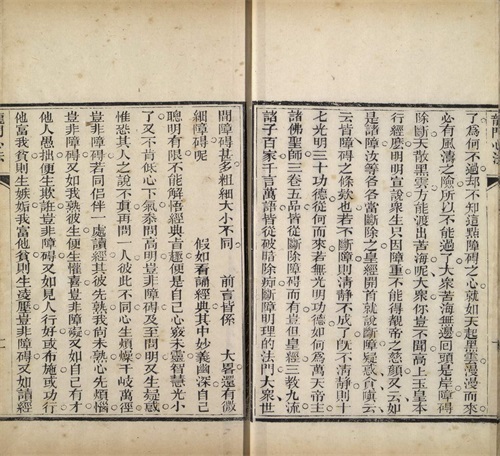 龍門心法
了爲何不過却不知這點障碍之心就如天起黑雲漫漫而來
必有風濤之險所以不能過了大衆苦海無邊回頭是岸障碍
除斷天散黑雲方能渡出苦海呢大衆你豈不聞高上玉皇本
行經麼明明宣說衆生只因障重不能得覩帝之慈顏又云如
是諸障汝等各各當斷除之皇經開首就說斷障疑惑貪嗔云
云皆障碍之條欵也若不斷障則清静不成了旣不清静則十
七光明三十功德從何而來若無光明功德如何爲萬天帝主
諸佛聖師三卷五品皆從斷除障碍而有豈但皇經三教九流
諸子百家千言萬語皆從破暗除痴斷障明理的法門大衆世
間障碍甚多粗細大小不同 前言皆係 大畧還有微
細障碍呢 假如看誦經典其中妙義幽深自己
聰明有限不能解悟經典旨趣便是自己心竅未靈智慧光小
了又不肯低心下氣叅問高明豈非障碍及至問明又生疑惑
惟恐其人之說不眞再問一人彼此不同心生煩燥千岐萬徑
豈非障碍若同侶伴一處讀經其彼先熟我尙未熟心先煩惱
豈非障碍又如我熟彼生便生懽喜豈非障礙又如自己有才
他人愚拙便生欺誑豈非障碍又如見人行好或布施或功行
他富我貧則生嫉妬我富他貧則生凌壓豈非障碍又如誦經
龍門心法